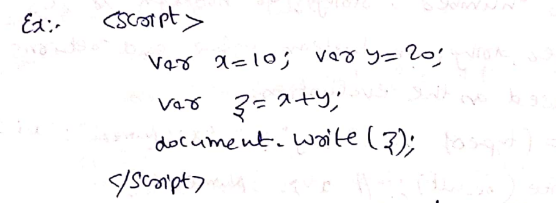 Ex:- <script>
var x=10; var y=20;
var z=x+y;
document.write(z);
</script>